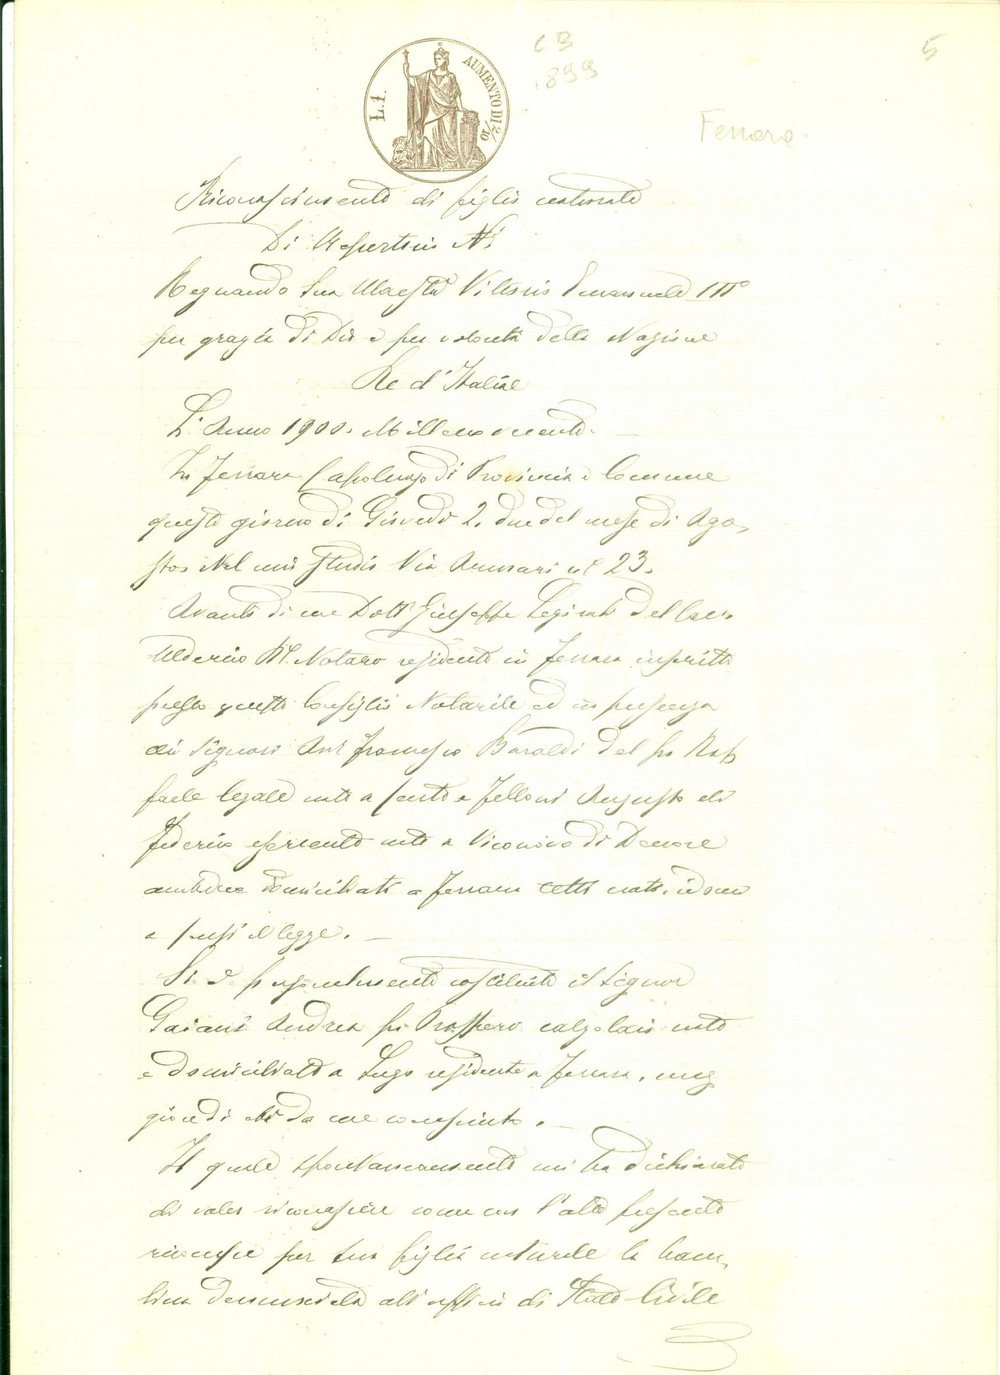 L. 1.
AUMENTO DI 2/10
CB
.899
5
Ferrara.
Riconoscimento di figlio naturale
Di Repertorio N°
Regnando Sua Maestà Vittorio Emanuele III°
per grazia di Dio e per volontà della Nazione
Re d'Italia
L'Anno 1900. Millenovecento.
In Ferrara Capoluogo di Provincia e Comune
questo giorno di Giovedì 2. due del mese di Ago-
sto. Nel mio studio Via Armari n° 23.
Avanti di me Dott. Giuseppe Leziroli del Cav.
Alderico R° Notaro residente in Ferrara inscritto
presso questo Consiglio Notarile ed in presenza
dei Signori Avv. Francesco Baraldi del fu Raf-
faele legale nato a Cento e Felloni Augusto di
Federico esercente nato a Viconovo di Denore
ambidue domiciliati a Ferrara testi noti, idonei
a sensi di legge.
Si è personalmente costituito il Signor
Gaiani Andrea fu Prospero calzolaio nato
e domiciliato a Lugo residente a Ferrara, mag-
giore di età da me conosciuto.
Il quale spontaneamente mi ha dichiarato
di voler riconoscere come con l'atto presente
riconosce per sua figlia naturale la bam-
bina denunciata all'ufficio di Stato Civile